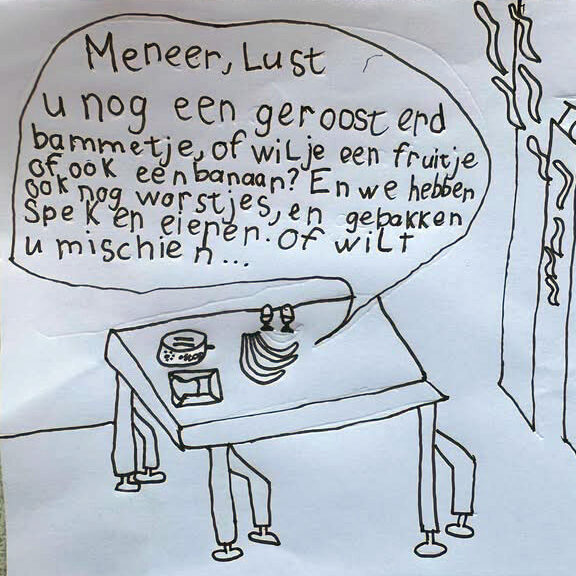 Meneer, Lust
u nog een geroosterd
bammetje, of wil je een fruitje
of ook een banaan? En we hebben
ook nog worstjes, en gebakken
Spek en eieren. Of wilt
u mischien...